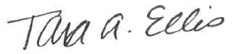 Tara A. Ellis